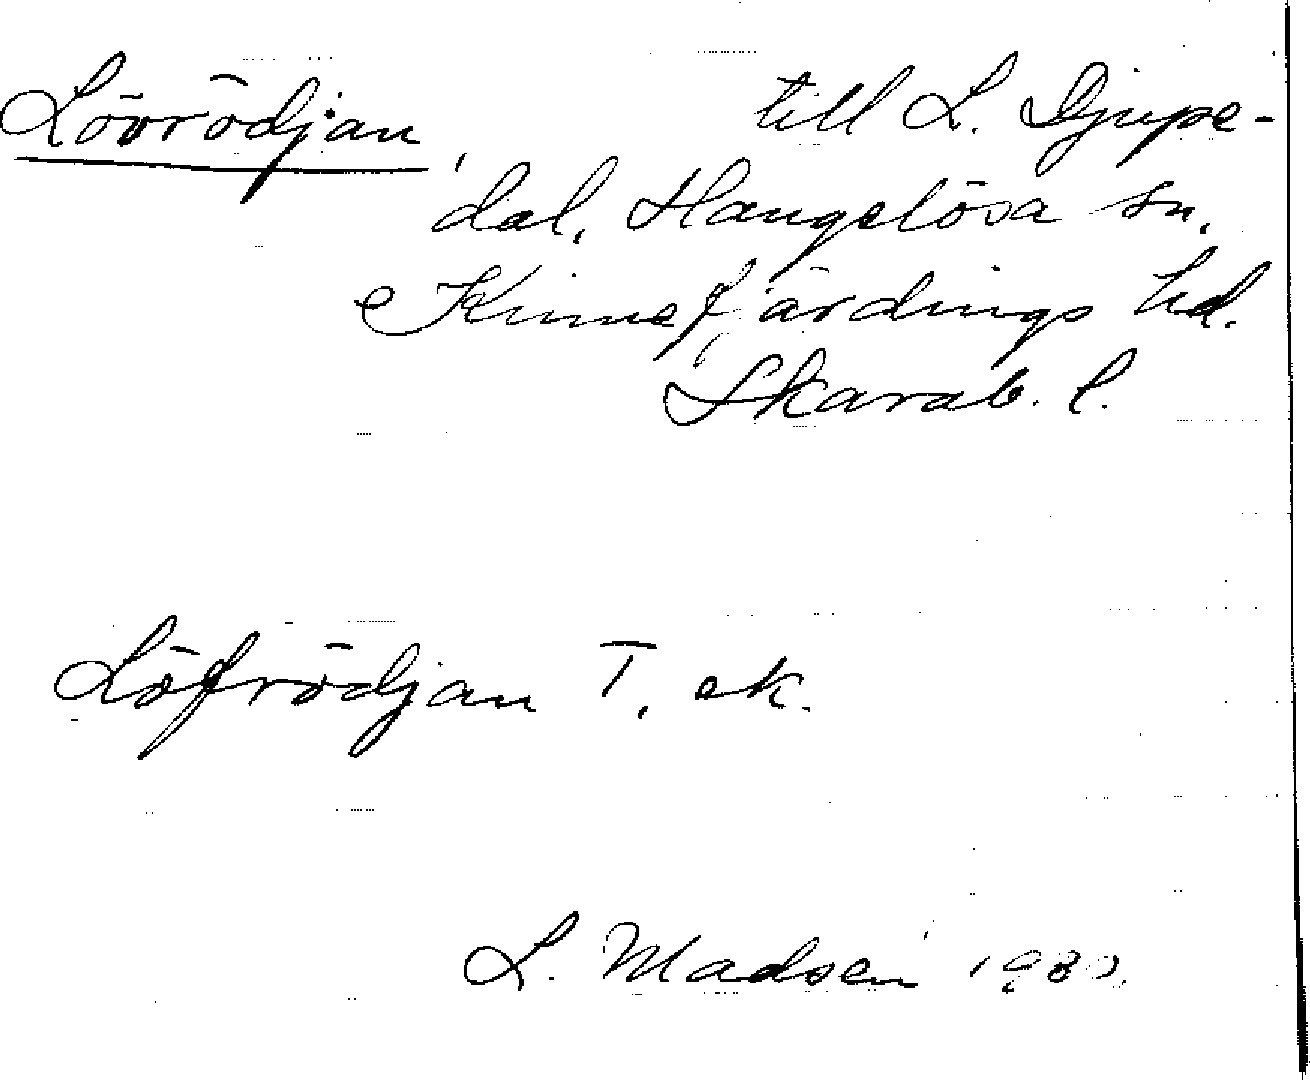 Lövrödjan, till L. Djupe-
dal, Hangelösa sn,
Kinnefjärdings hd.
Skarab. l.
Löfrödjan T. ek.
L. Madsen 1930.